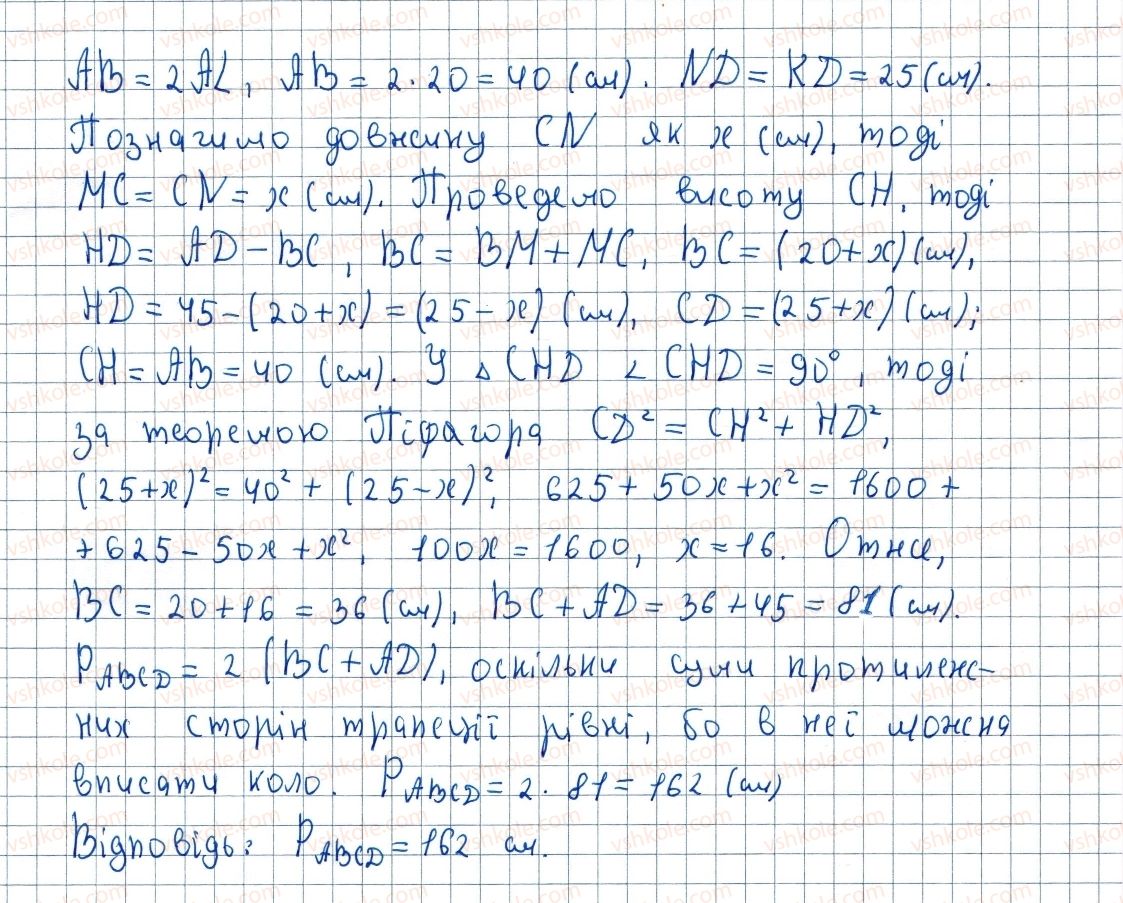 AB = 2AL, AB = 2·20 = 40 (см). ND = KD = 25 (см).
Позначимо довжину CN як x (см), тоді
MC = CN = x (см). Проведемо висоту CH, тоді
HD = AD − BC, BC = BM + MC, BC = (20 + x) (см),
HD = 45 − (20 + x) = (25 − x) (см), CD = (25 + x) (см);
CH = AB = 40 (см). У △ CHD ∠ CHD = 90°, тоді
за теоремою Піфагора CD² = CH² + HD²,
(25 + x)² = 40² + (25 − x)², 625 + 50x + x² = 1600 +
+ 625 − 50x + x², 100x = 1600, x = 16. Отже,
BC = 20 + 16 = 36 (см), BC + AD = 36 + 45 = 81 (см).
P_ABCD = 2 (BC + AD), оскільки суми протилеж-
них сторін трапеції рівні, бо в неї можна
вписати коло. P_ABCD = 2 · 81 = 162 (см)
Відповідь: P_ABCD = 162 см.